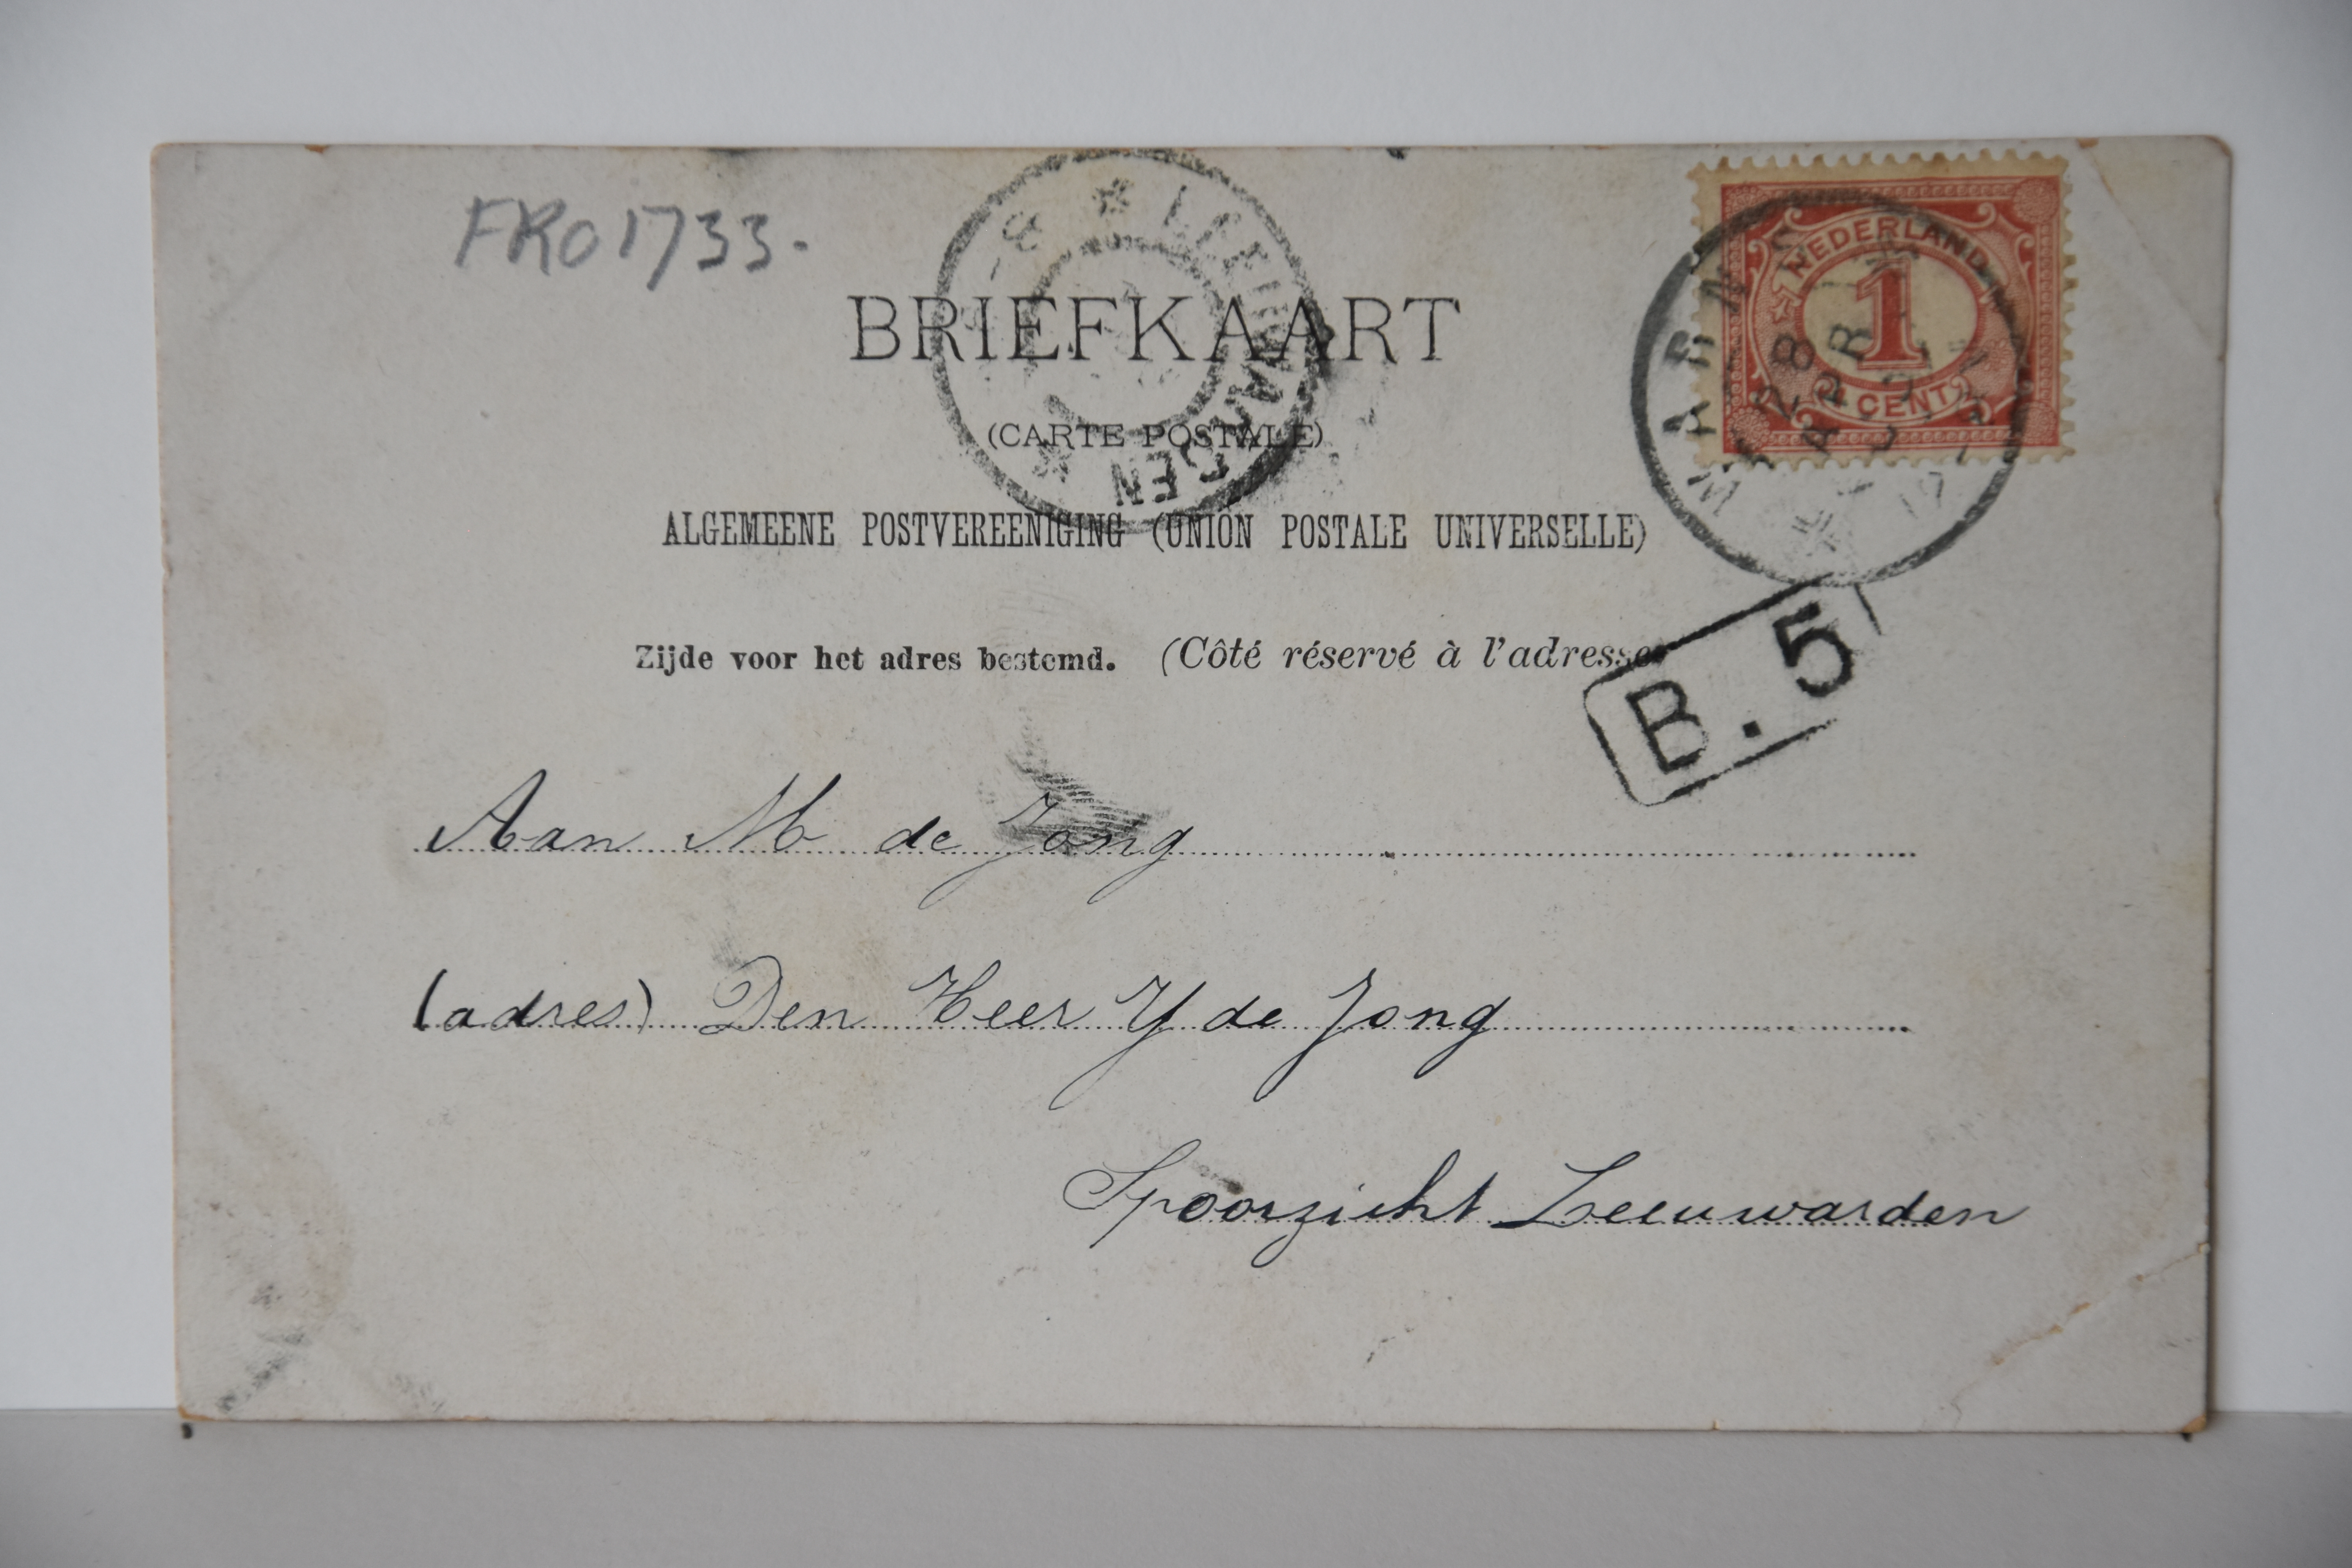 FRO1733.
LEEUWARDEN
BRIEFKAART
(CARTE POSTALE)
ALGEMEENE POSTVEREENIGING (UNION POSTALE UNIVERSELLE)
Zijde voor het adres bestemd. (Côté réservé à l'adresse
NEDERLAND
1
CENT
WARNS
28
APR
B. 5
Aan M de Jong
(adres) Den Heer Y de Jong
Spoorzicht Leeuwarden